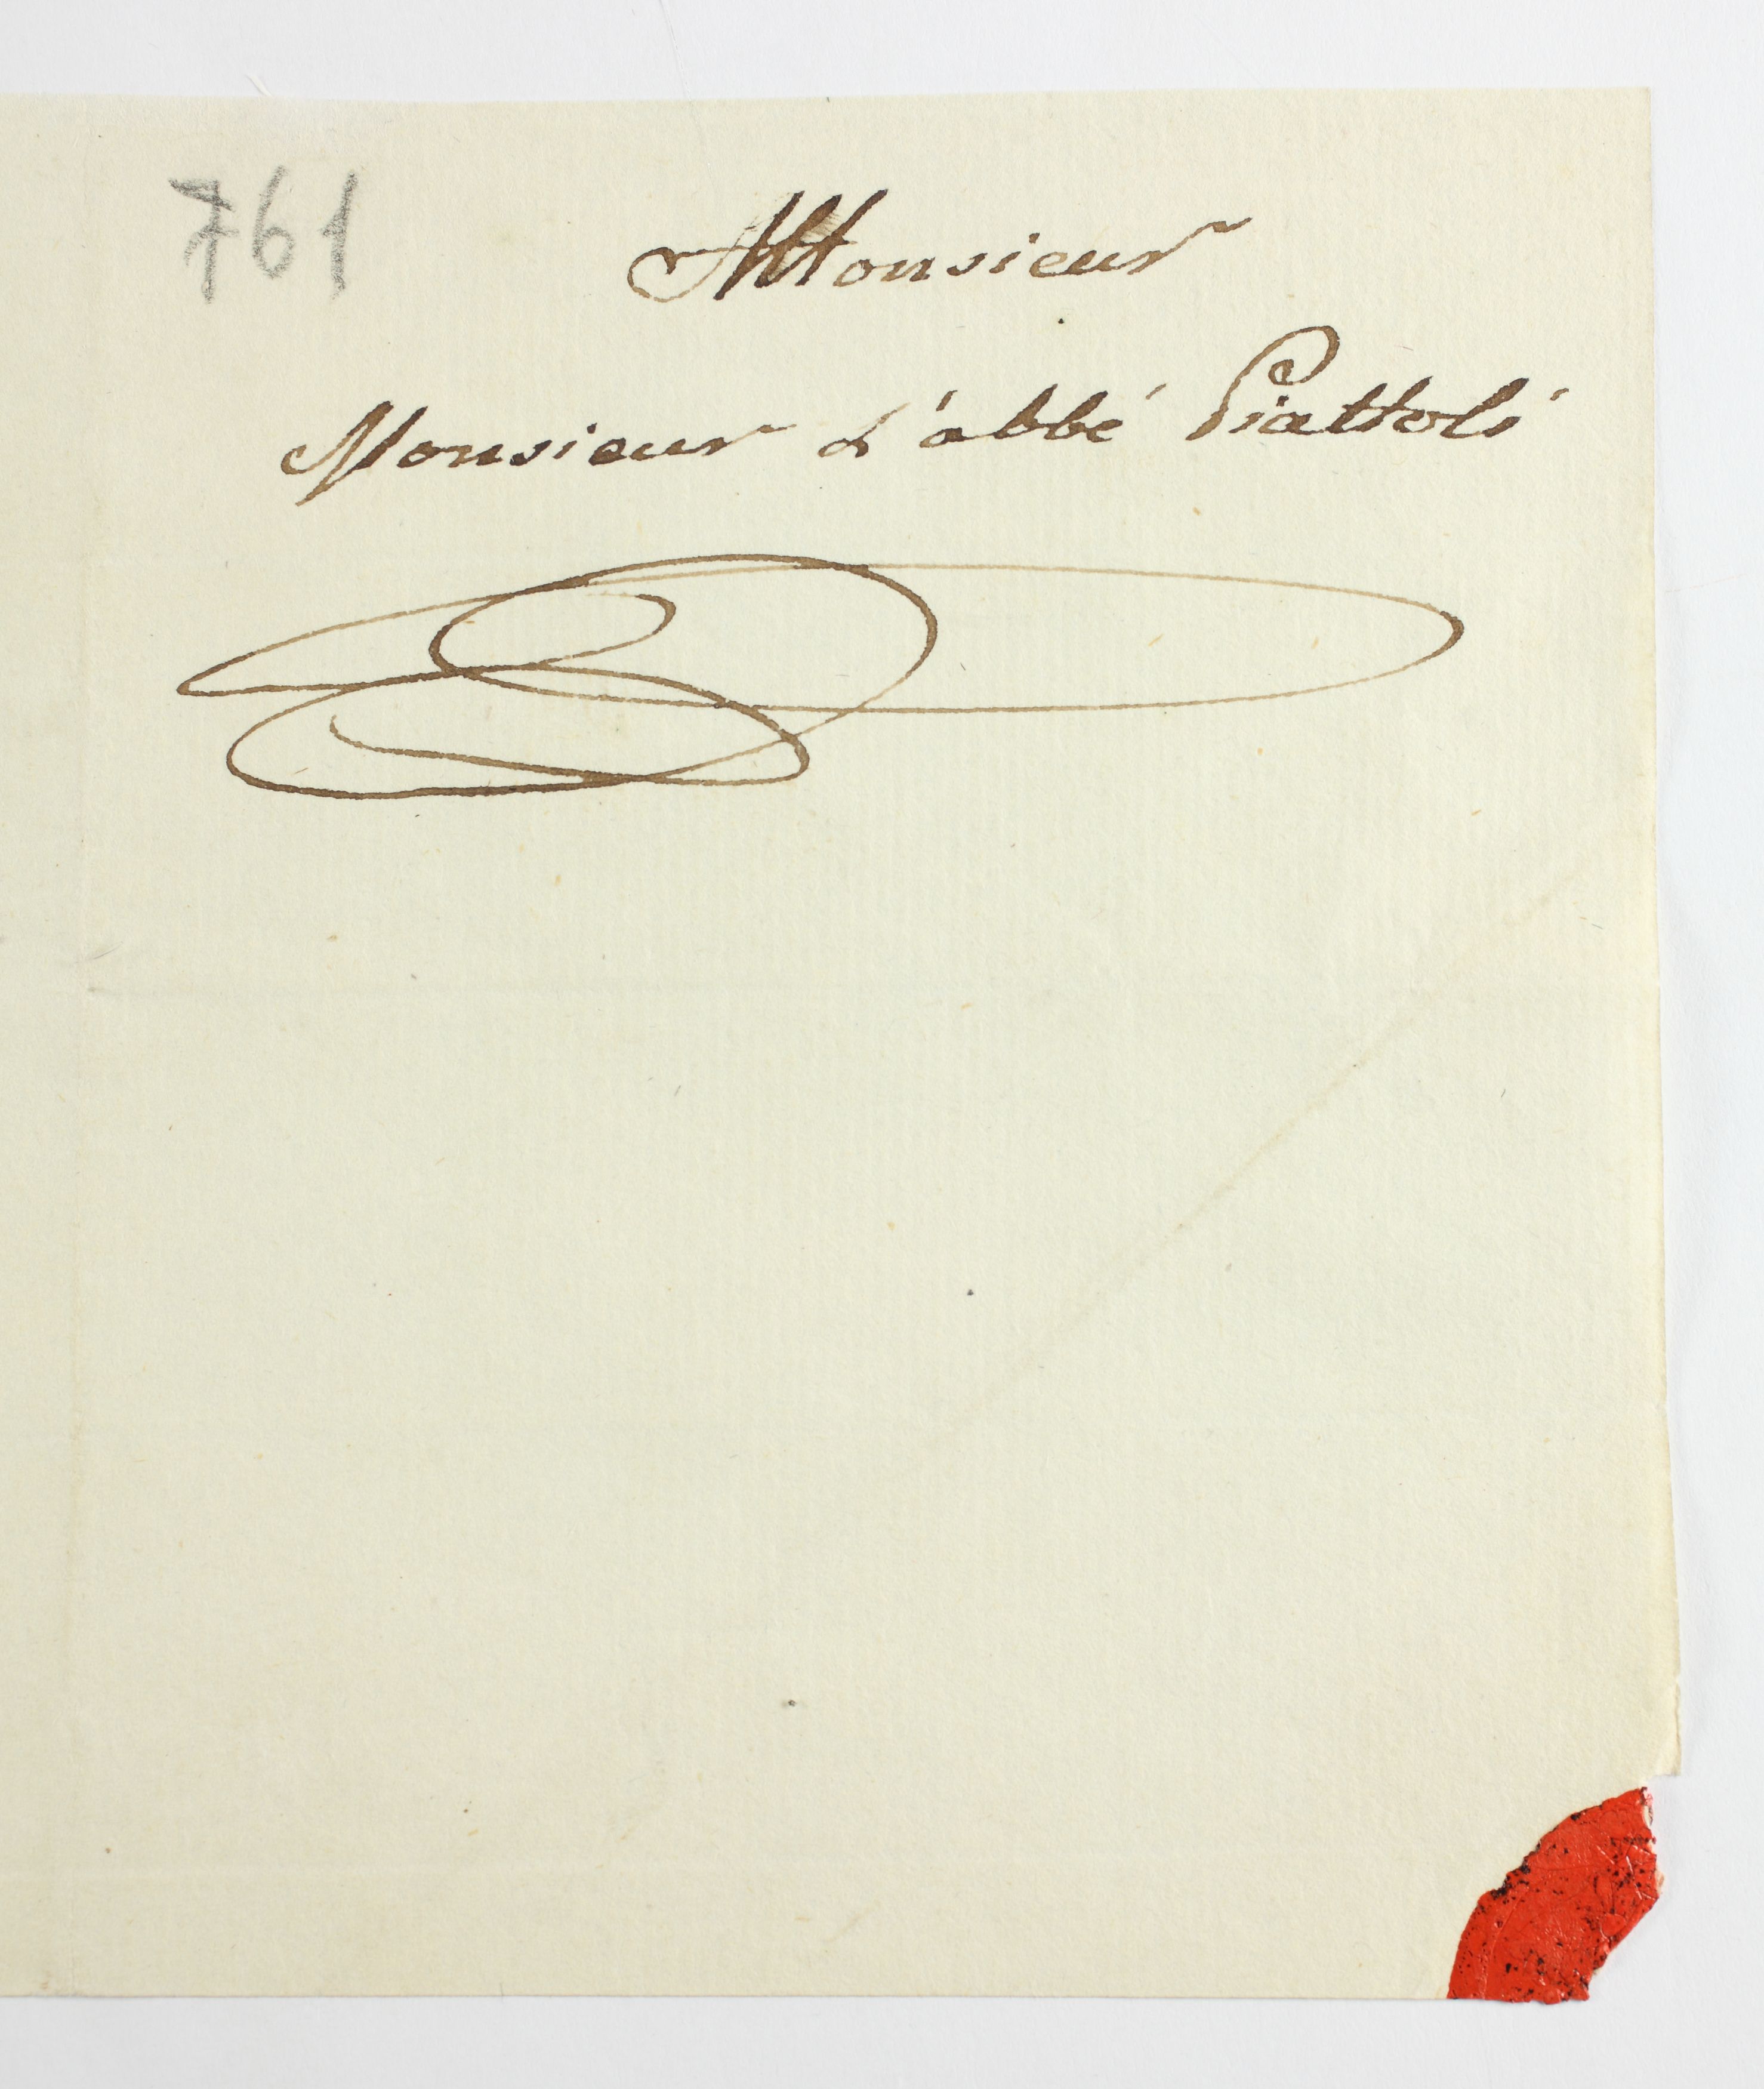 761
Monsieur
Monsieur L'abbé Piattoli